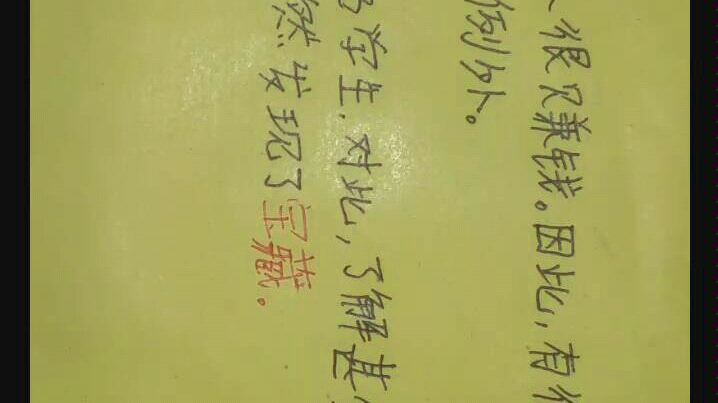 很只赚钱。因此,有
例外。
学生.对此,了解甚
然发现了宝藏。